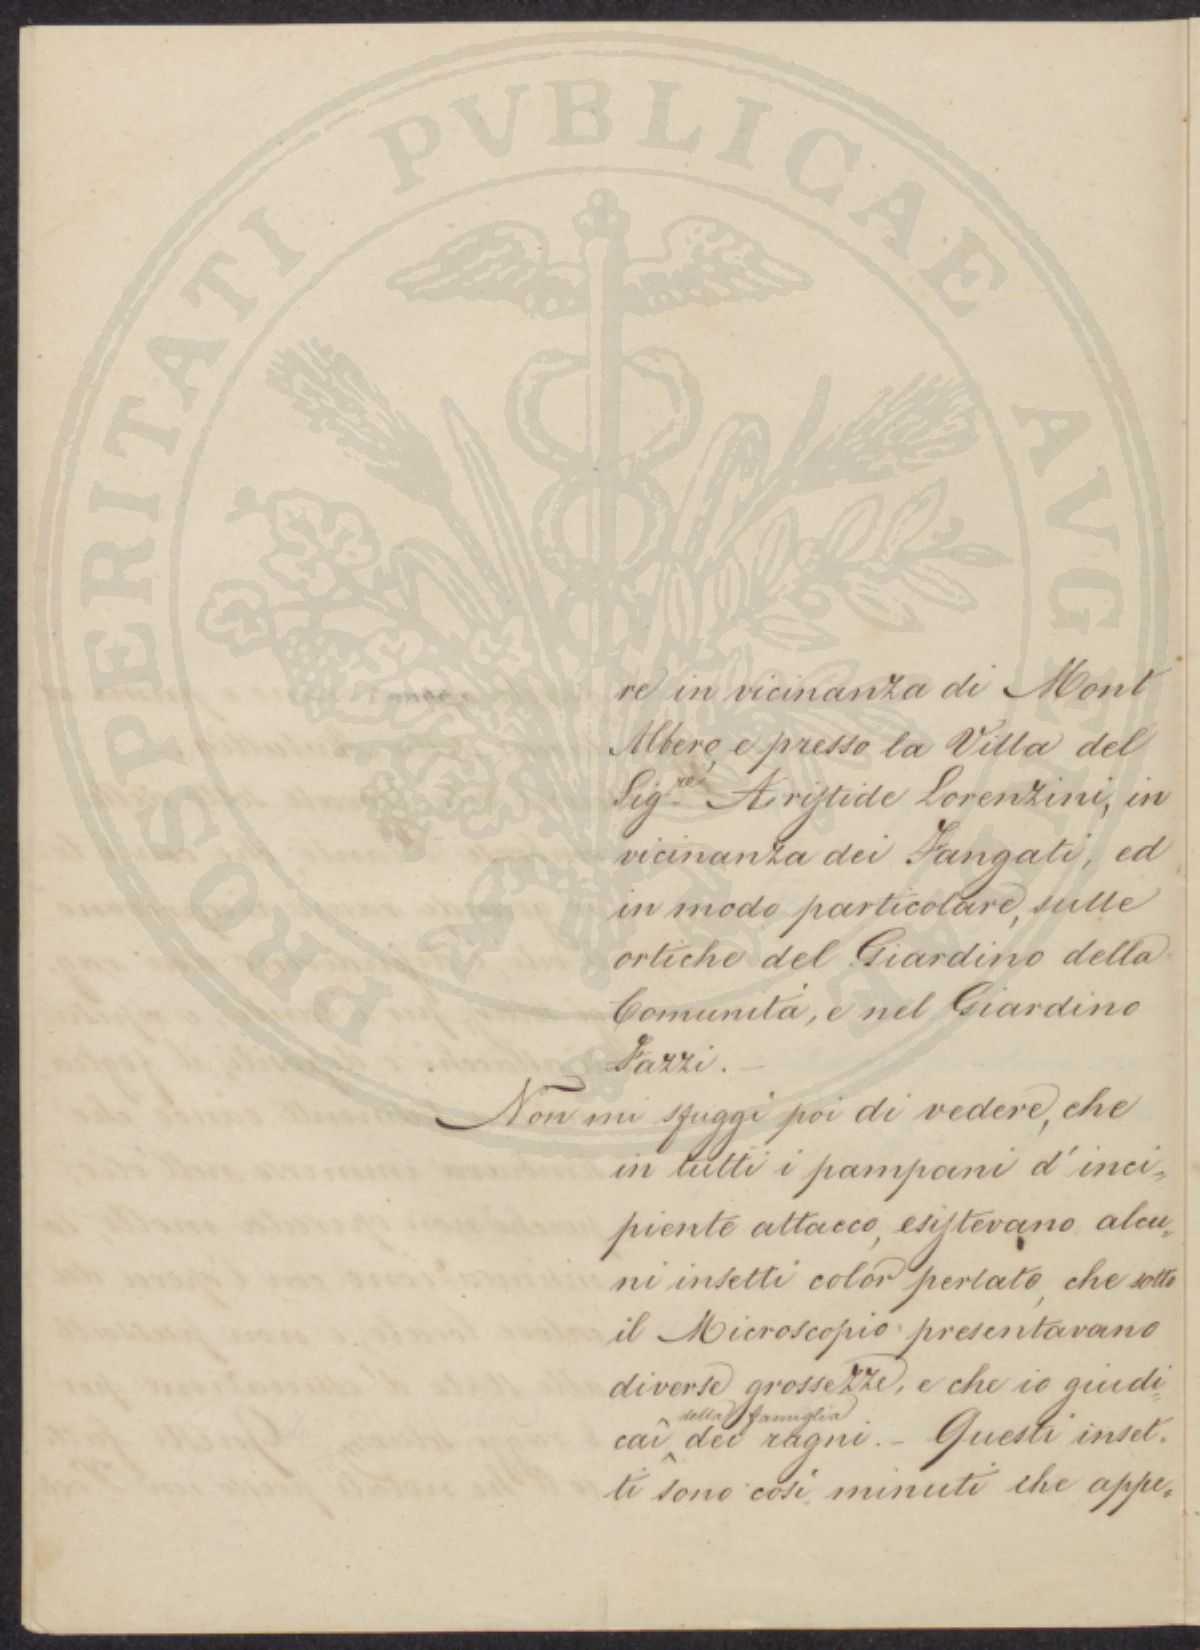 PROSPERITATI PUBLICAE AUGENDAE
re in vicinanza di Mont
Albero, e presso la Villa del
Sig.re Aristide Lorenzini, in
vicinanza dei Fangati, ed
in modo particolare, sulle
ortiche del Giardino della
Comunità, e nel Giardino
Fazzi. –
Non mi sfuggì poi di vedere, che
in tutti i pampani d'inci-
piente attacco, esistevano alcu-
ni insetti color perlato, che sotto
il Microscopio presentavano
diverse grossezze, e che io giudi-
cai della famiglia dei ragni. – Questi inset-
ti sono così minuti che appe-